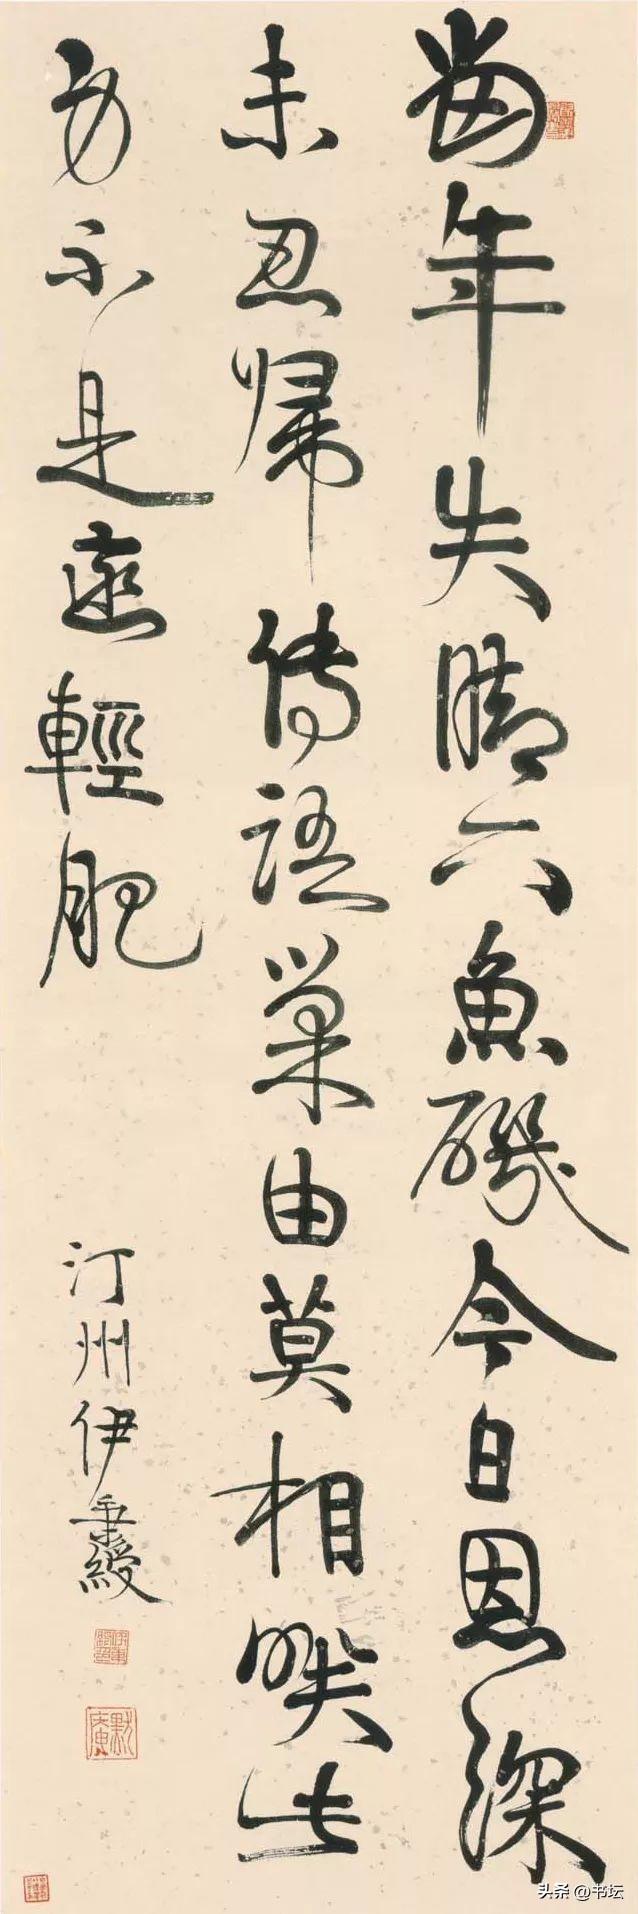 當年失脚下魚磯今日恩深
未忍歸傳語巢由莫相咲此
身不是恋輕肥
汀州伊秉綬
默庵
头条 @书坛